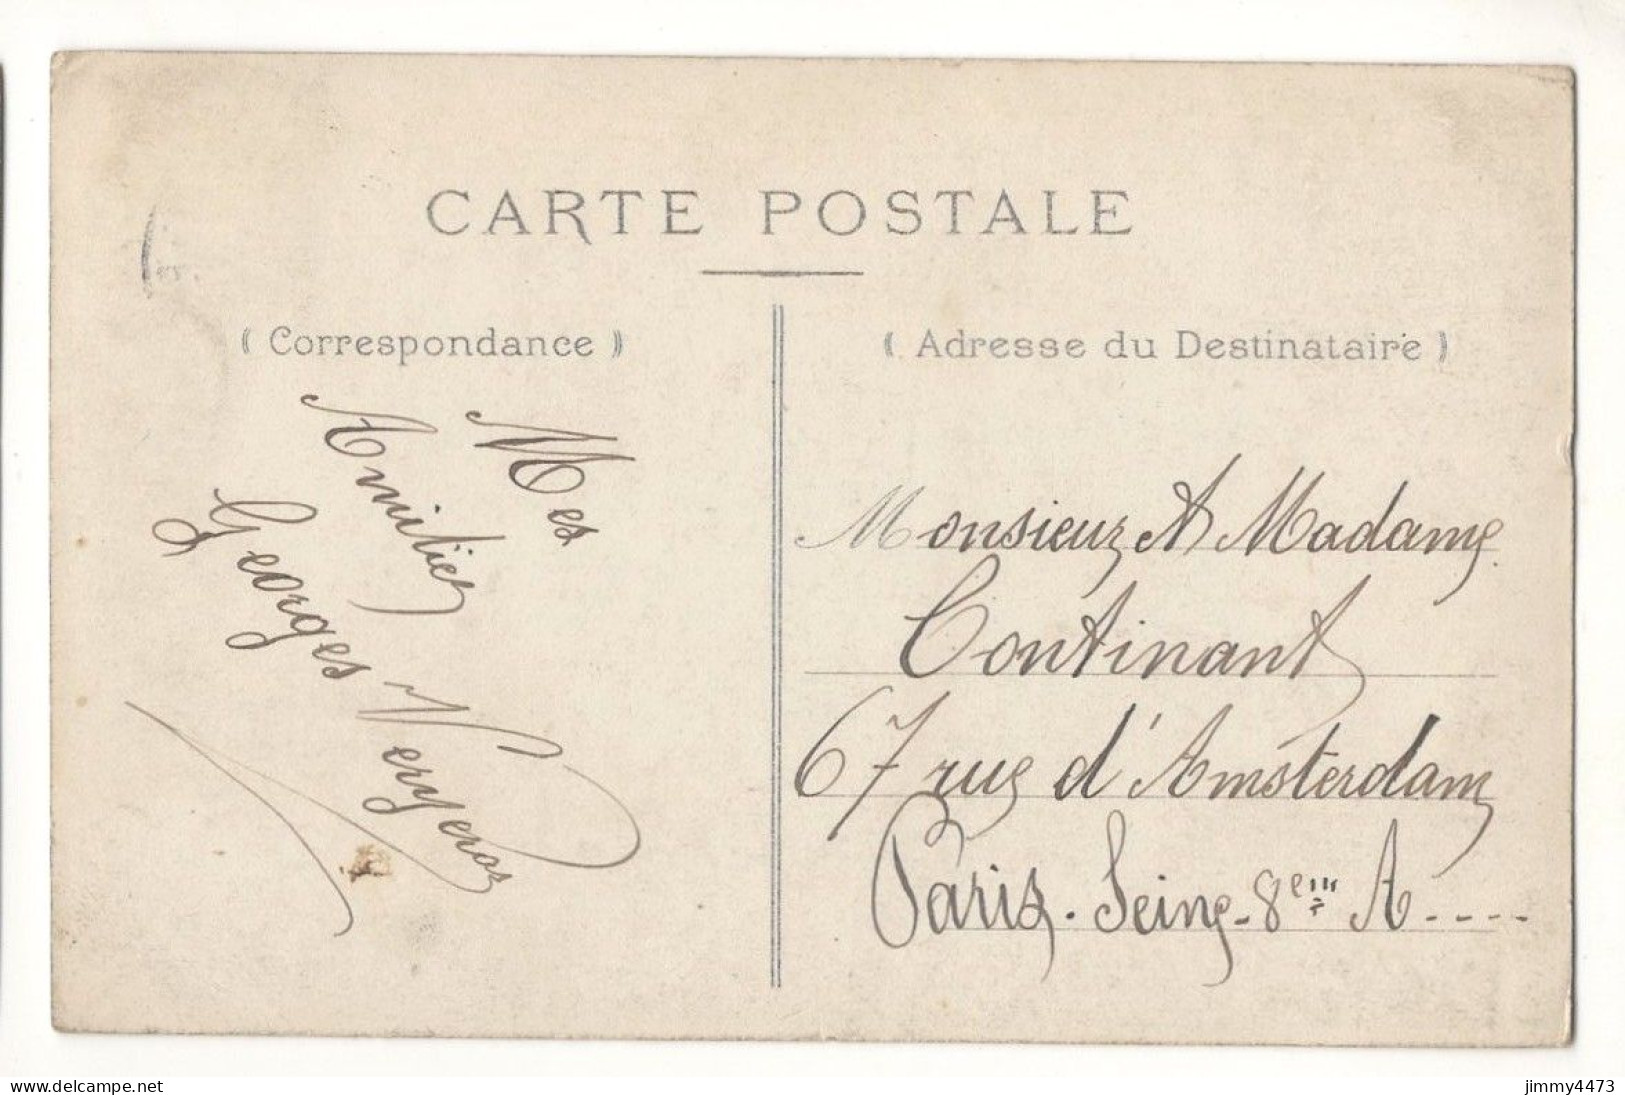 CARTE POSTALE
( Correspondance )
Mes
Amitiés
Georges
( Adresse du Destinataire )
Monsieur et Madame
Continant
67 rue d'Amsterdam
Paris. Seine - 8ème A----
delcampe.net
jimmy4473